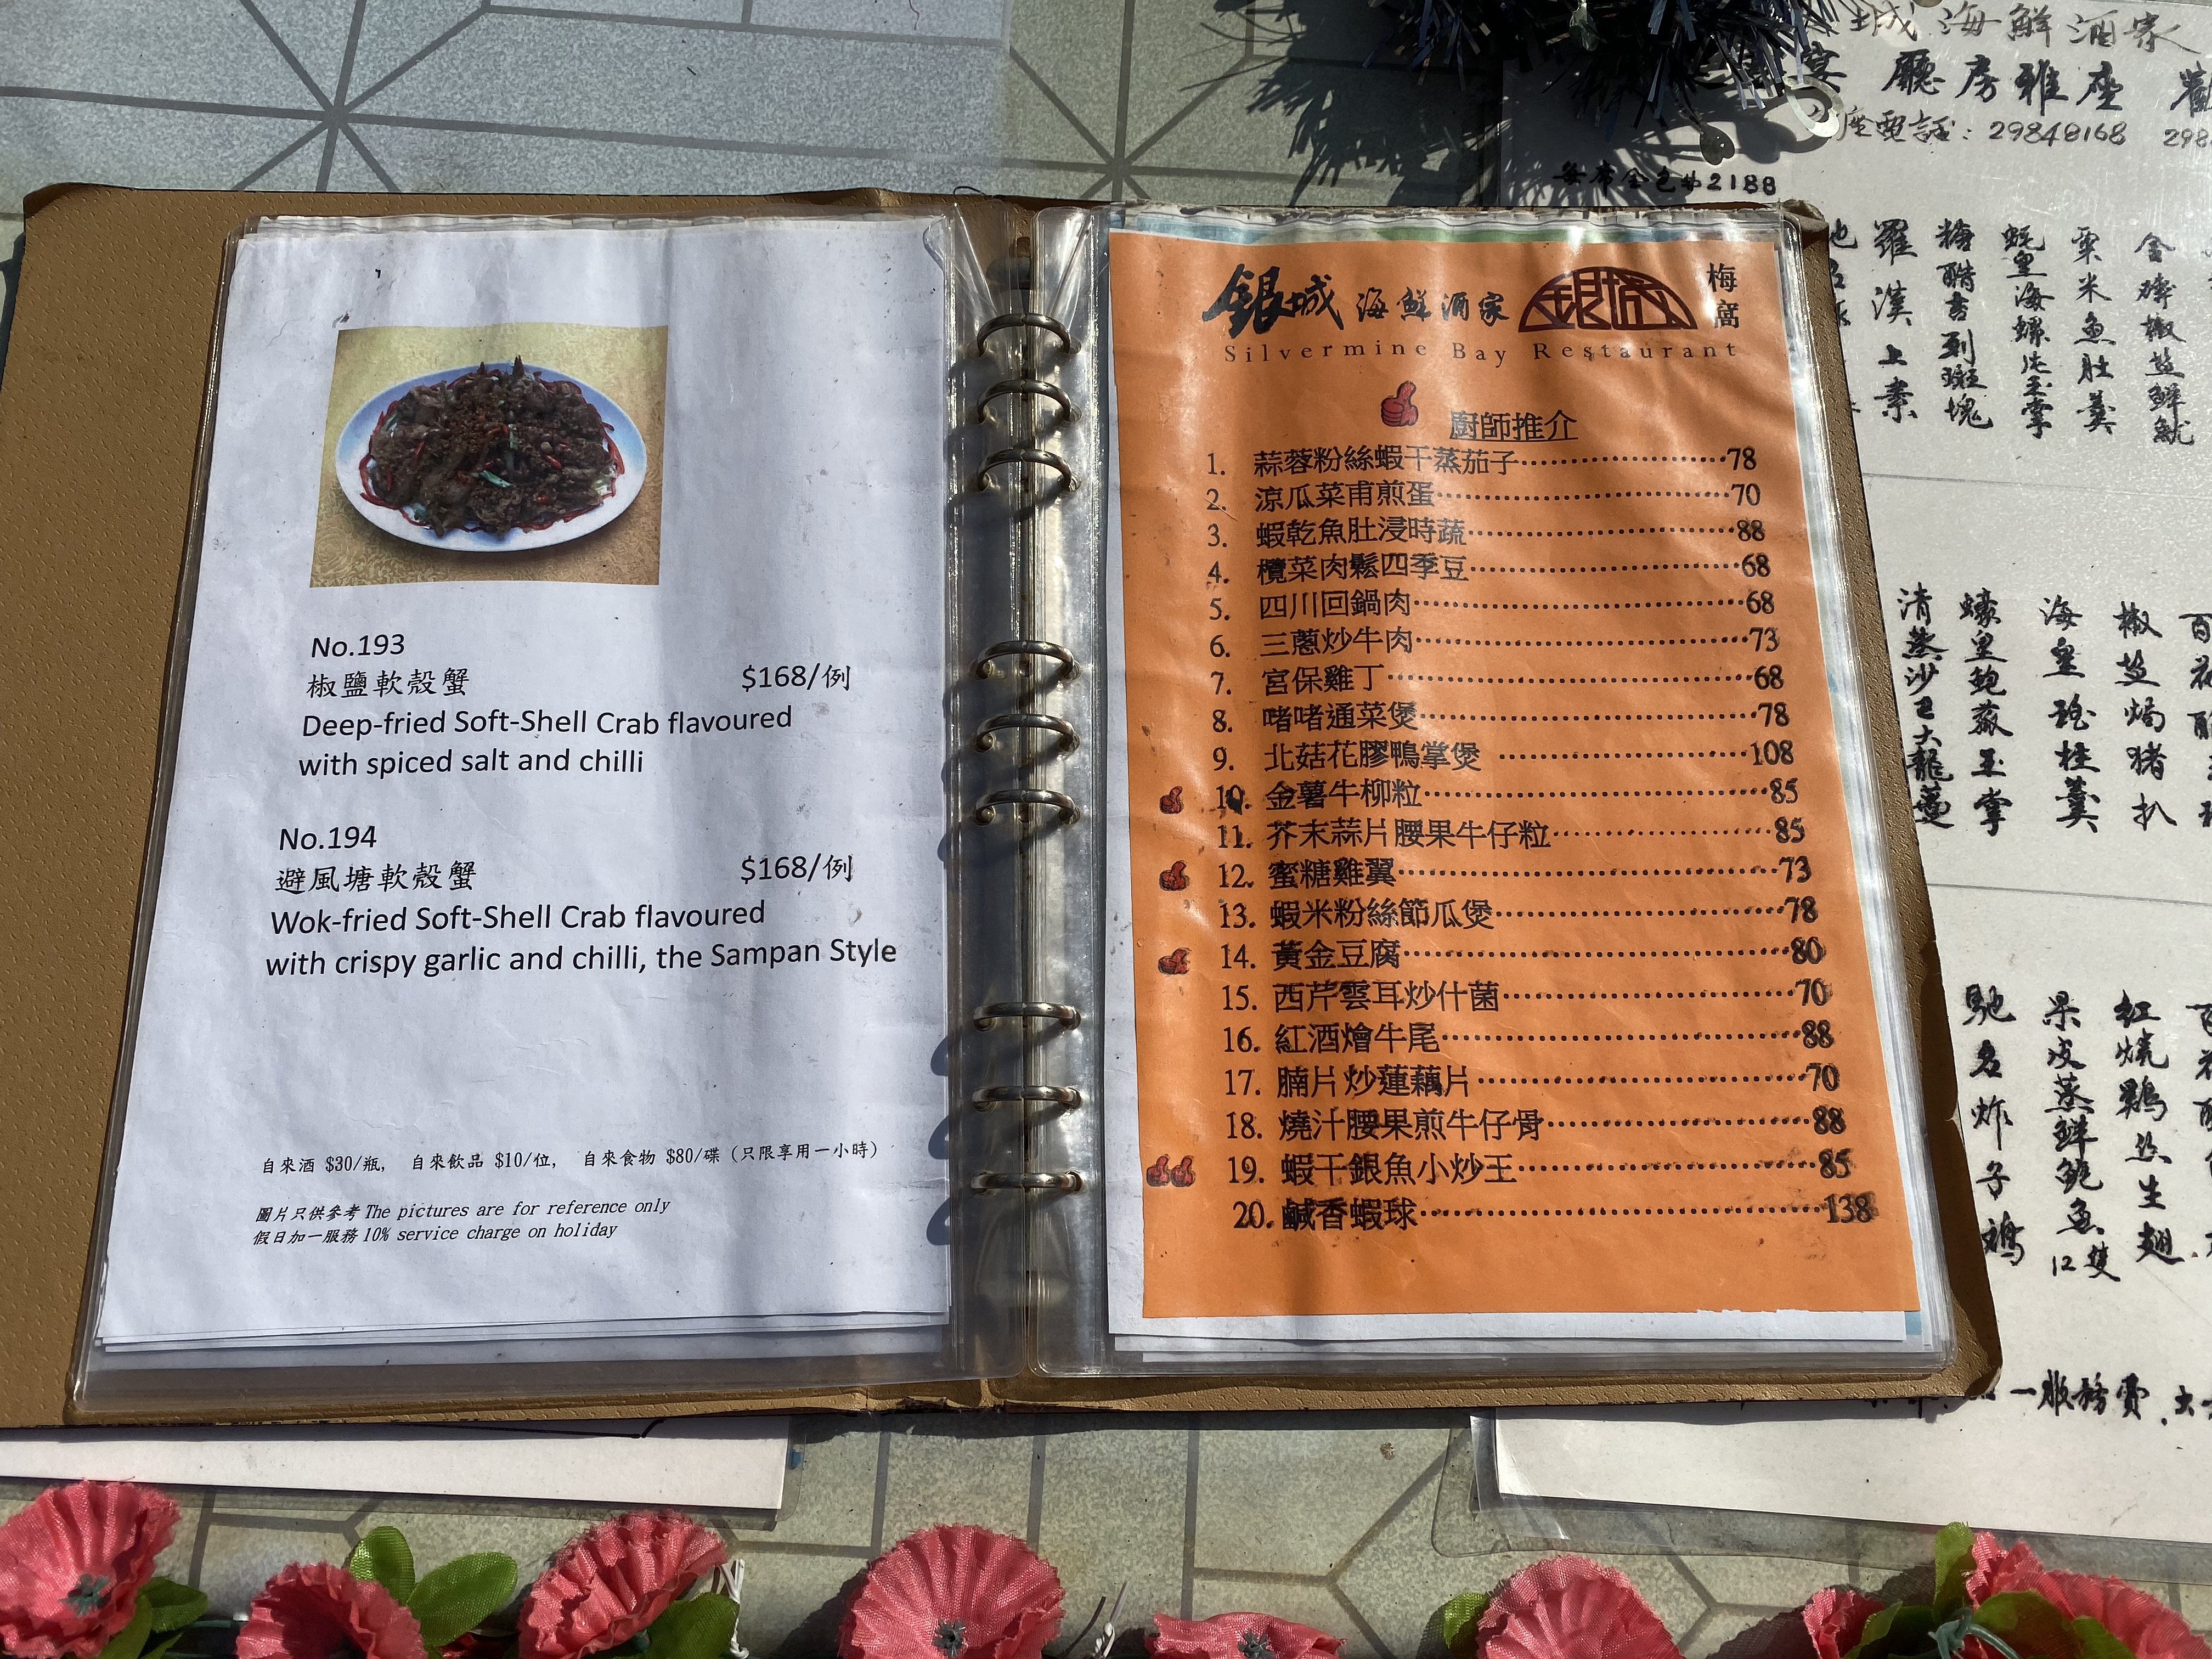 No.193
椒鹽軟殼蟹 $168/例
Deep-fried Soft-Shell Crab flavoured
with spiced salt and chilli
No.194
避風塘軟殼蟹 $168/例
Wok-fried Soft-Shell Crab flavoured
with crispy garlic and chilli, the Sampan Style
自來酒 $30/瓶, 自來飲品 $10/位, 自來食物 $80/碟 (只限享用一小時)
圖片只供參考 The pictures are for reference only
假日加一服務 10% service charge on holiday
銀城 海鮮酒家 銀城 梅窩
Silvermine Bay Restaurant
廚師推介
1. 蒜蓉粉絲蝦干蒸茄子 78
2. 涼瓜菜甫煎蛋 70
3. 蝦乾魚肚浸時蔬 88
4. 欖菜肉鬆四季豆 68
5. 四川回鍋肉 68
6. 三蔥炒牛肉 73
7. 宮保雞丁 68
8. 啫啫通菜煲 78
9. 北菇花膠鴨掌煲 108
10. 金薯牛柳粒 85
11. 芥末蒜片腰果牛仔粒 85
12. 蜜糖雞翼 73
13. 蝦米粉絲節瓜煲 78
14. 黃金豆腐 80
15. 西芹雲耳炒什菌 70
16. 紅酒燴牛尾 88
17. 腩片炒蓮藕片 70
18. 燒汁腰果煎牛仔骨 88
19. 蝦干銀魚小炒王 85
20. 鹹香蝦球 138
城海鮮酒家
宴 廳房雅座
座電話: 29848168 298
每席全包价2188
金磚椒盐鮮魷
粟米魚肚羹
蚝皇海螺片玉掌
糖醋吉列斑塊
羅漢上素
椒盐焗猪扒
海皇瑤柱羹
蠔皇鮑菇玉掌
清蒸沙巴大龍躉
紅燒鷄絲生翅
果皮蒸鮮鮑魚12隻
馳名炸子鸡
一服務費